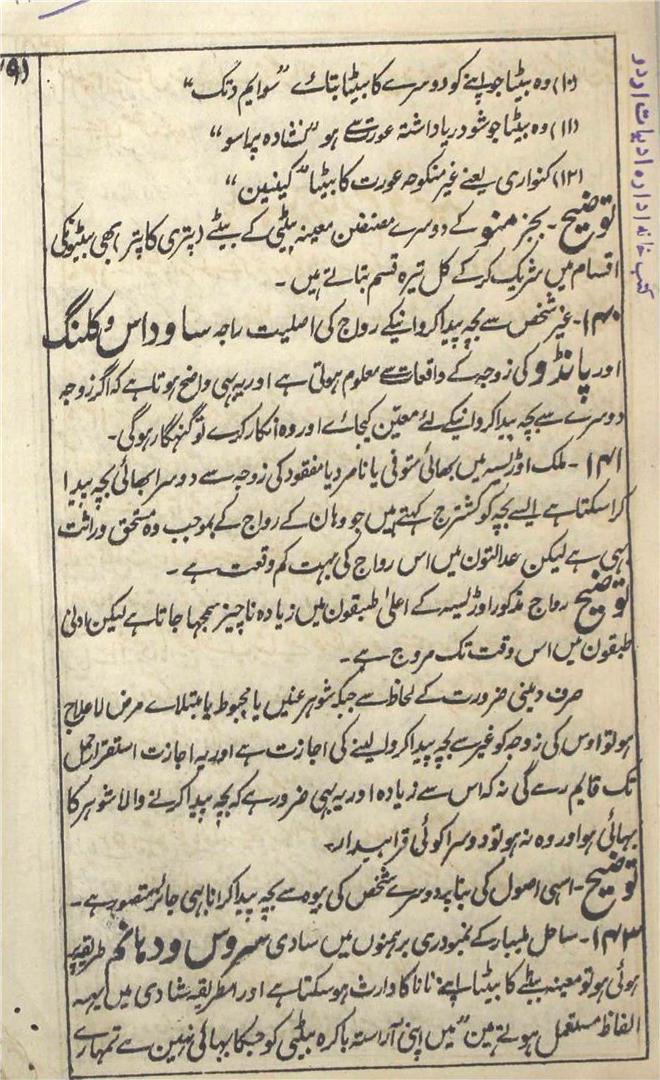 (۱۰) وہ بیٹا جو اپنے کو دوسرے کا بیٹا بتائے "سوایم دتگ"
(۱۱) وہ بیٹا جو شودر یا داشتہ عورت سے ہو "نشادہ پراسو"
(۱۲) کنواری یعنے غیر منکوحہ عورت کا بیٹا "کینین"
توضیح۔ بجز منو کے دوسرے مصنفن معینہ بیٹی کے بیٹے (پتری کا پتر) بھی بیٹونکی
اقسام میں شریک کر کے کل تیرہ قسم بتاتے ہیں ۔
۱۴۰۔ غیر شخص سے بچہ پیدا کروانیکے رواج کی اصلیت راجہ ساوداس و کلنگ
اور پانڈو کی زوجہ کے واقعات سے معلوم ہوتی ہے اور یہ بھی واضح ہوتا ہے کہ اگر زوجہ
دوسرے سے بچہ پیدا کروانیکے لئے معین کیجائے اور وہ انکار کرے تو گنہگار ہوگی۔
۱۴۱۔ ملک اوڑیسہ میں بھائی متوفی یا نامرد یا مفقود کی زوجہ سے دوسرا بھائی بچہ پیدا
کرا سکتا ہے ایسے بچہ کو کشترج کہتے ہیں جو وہان کے رواج کے بموجب وہ مستحق وراثت
بہی ہے لیکن عدالتون میں اس رواج کی بہت کم وقعت ہے ۔
توضیح رواج مذکور اوڑیسہ کے اعلیٰ طبقون میں زیادہ ناچیز سمجہا جاتا ہے لیکن ادنیٰ
طبقون میں اس وقت تک مروج ہے۔
صرف دینی ضرورت کے لحاظ سے جبکہ شوہر عنین یا مخبوط یا مبتلاے مرض لا علاج
ہو تو اوس کی زوجہ کو غیر سے بچہ پیدا کروالینے کی اجازت ہے اور یہ اجازت استقرار حمل
تک قایم رہے گی نہ کہ اس سے زیادہ اور یہ بہی ضرور ہے کہ بچہ پیدا کرنے والا شوہر کا
بہائی ہو اور وہ نہ ہو تو دوسرا کوئی قرابتدار۔
توضیح۔ اسی اصول کی بنا پر دوسرے شخص کی بیوہ سے بچہ پیدا کرانا بہی جائز متصور ہے۔
۱۴۳۔ ساحل ملیبار کے نمبودری برہمنوں میں سادی سروس ودہانم طریقہ پر
ہوئی ہو تو معینہ بیٹے کا بیٹا اپنے نانا کا وارث ہوسکتا ہے اور اطریقہ شادی میں یہہ
الفاظ مستعمل ہوتے ہین "میں اپنی آراستہ باکرہ بیٹیی کو جسکا بہائی نہین ہے تمہارے
کتب خانہ ادارہ ادبیات اردو